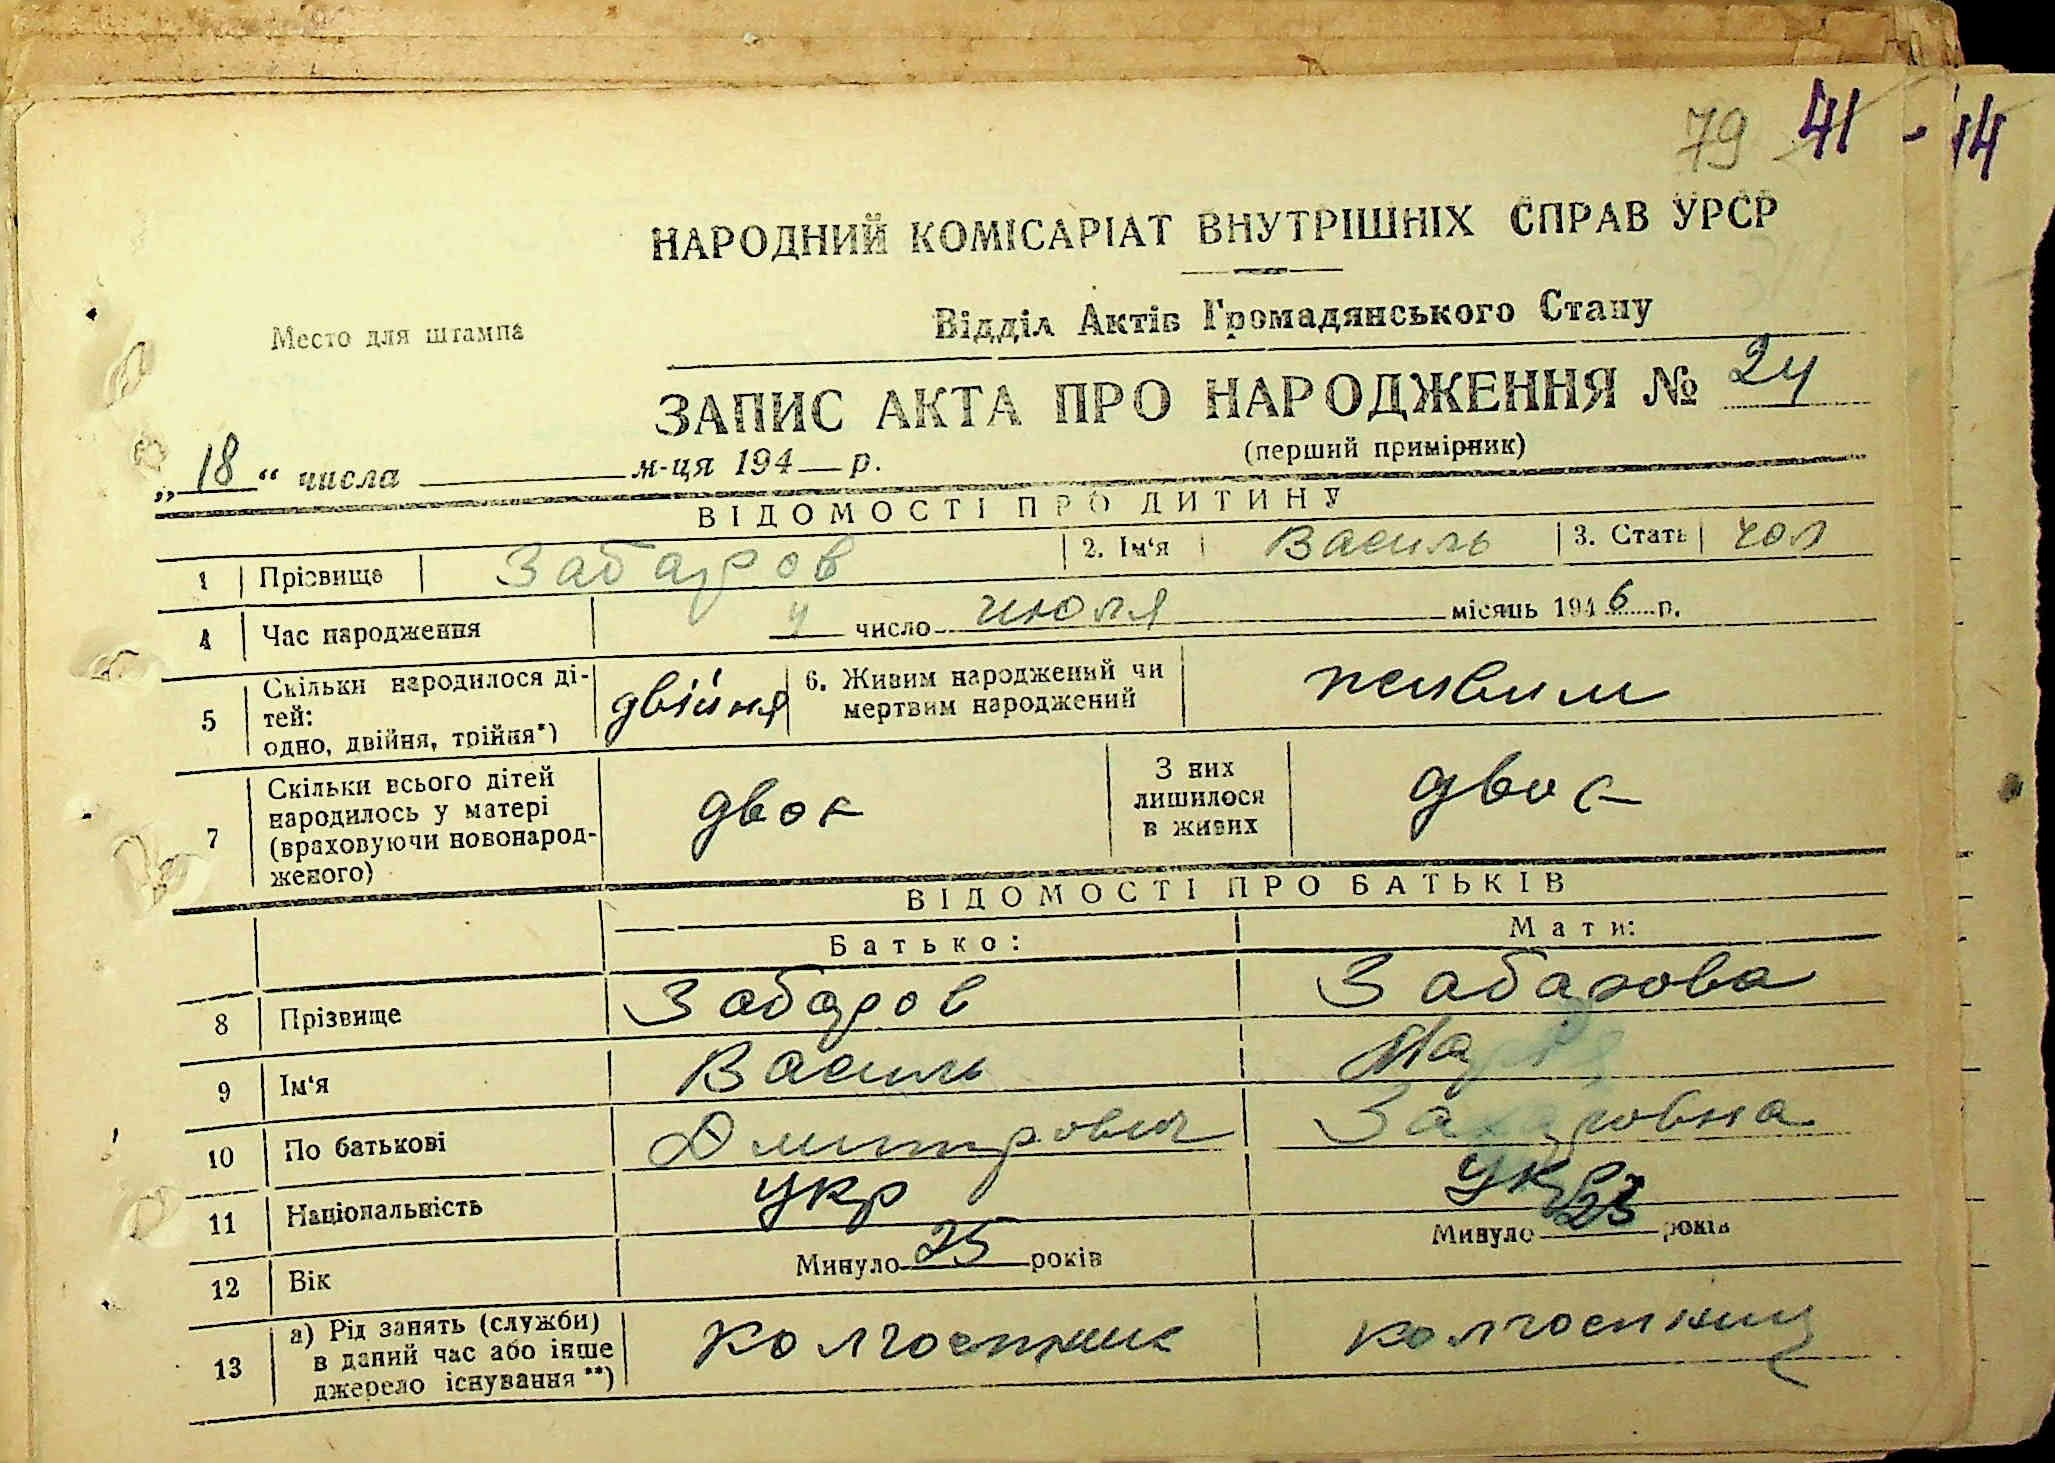 79 41 - 14
НАРОДНИЙ КОМІСАРІАТ ВНУТРІШНІХ СПРАВ УРСР
Место для штампа
Відділ Актів Громадянського Стану
ЗАПИС АКТА ПРО НАРОДЖЕННЯ № 24
(перший примірник)
„18“ числа м-ця 194 р.
ВІДОМОСТІ ПРО ДИТИНУ
1 Прізвище Забаров 2. Ім'я Василь 3. Стать чол
4 Час народження 4 число июля місяць 1946 р.
5 Скільки народилося ді-
тей:
одно, двійня, трійня*) двійня 6. Живим народжений чи
мертвим народжений живим
7 Скільки всього дітей
народилось у матері
(враховуючи новонарод-
женого) двоє З них
лишилося
в живих двоє
ВІДОМОСТІ ПРО БАТЬКІВ
Батько: Мати:
8 Прізвище Забаров Забарова
9 Ім'я Василь Марія
10 По батькові Дмитрович Захаровна
11 Національність укр укр
12 Вік Минуло 25 років Минуло 23 років
13 а) Рід занять (служби)
в даний час або інше
джерело існування **) колгоспник колгоспниц